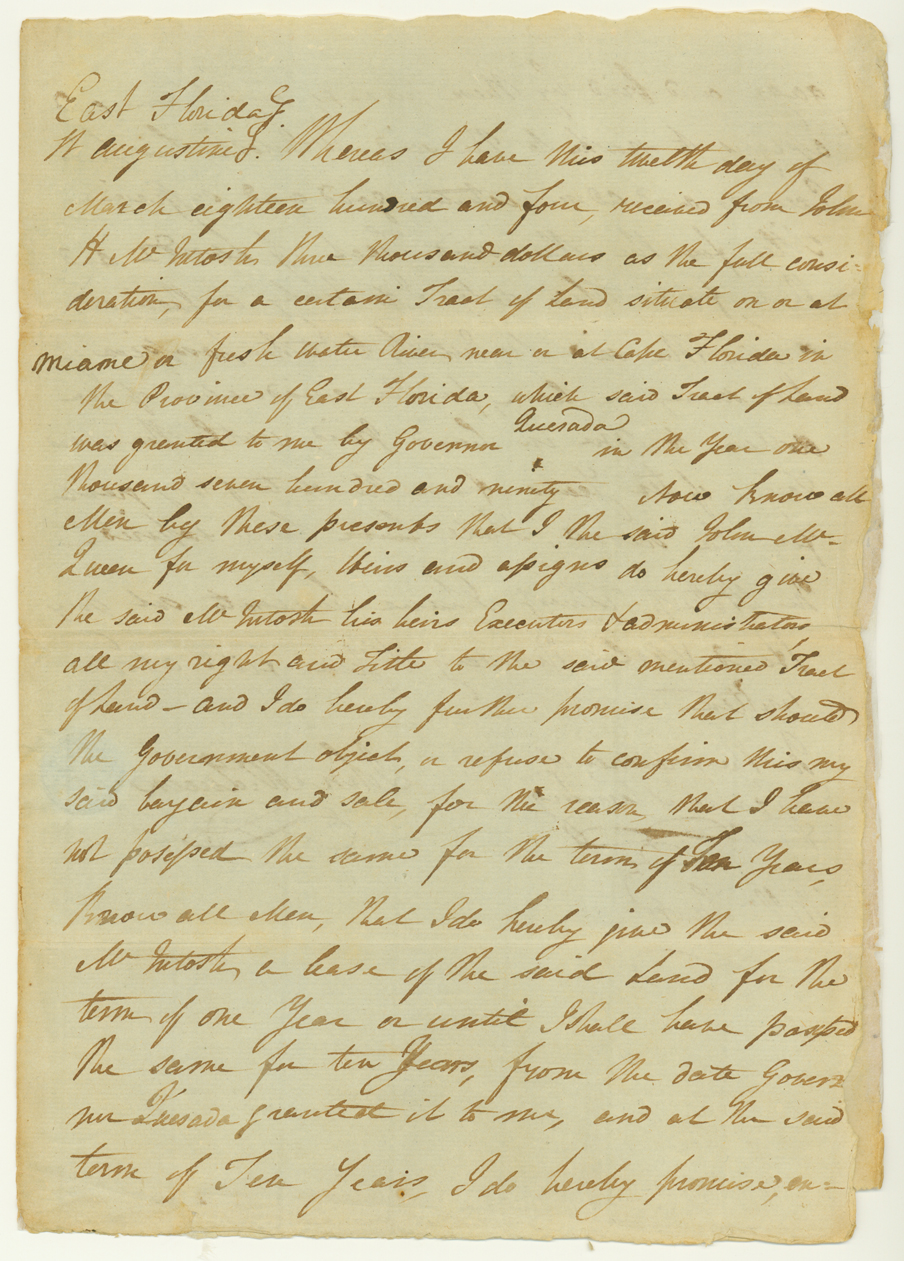 East Florida
St Augustine. Whereas I have this twelth day of
March eighteen hundred and four, received from John
H McIntosh three thousand dollars as the full consi-
deration, for a certain Tract of Land situate on or at
Miame or fresh water River, near or at Cape Florida in
the Province of East Florida, which said Tract of Land
was granted to me by Governor Quesada in the Year one
thousand seven hundred and ninety Now Know all
Men by these presents that I the said John Mc-
Queen for myself, Heirs and assigns do hereby give
the said McIntosh his heirs Executors & administrators,
all my right and Title to the said mentioned Tract
of Land - and I do hereby further promise that should
the Government object, or refuse to confirm this my
said bargain and sale, for the reason, that I have
not possessed the same for the term of Ten Years,
Know all Men, that I do hereby give the said
McIntosh, a lease of the said Land for the
term of one Year or until I shall have possessed
the same for ten Years, from the date Gover-
nor Quesada granted it to me, and at the said
term of Ten Years, I do hereby promise, en-